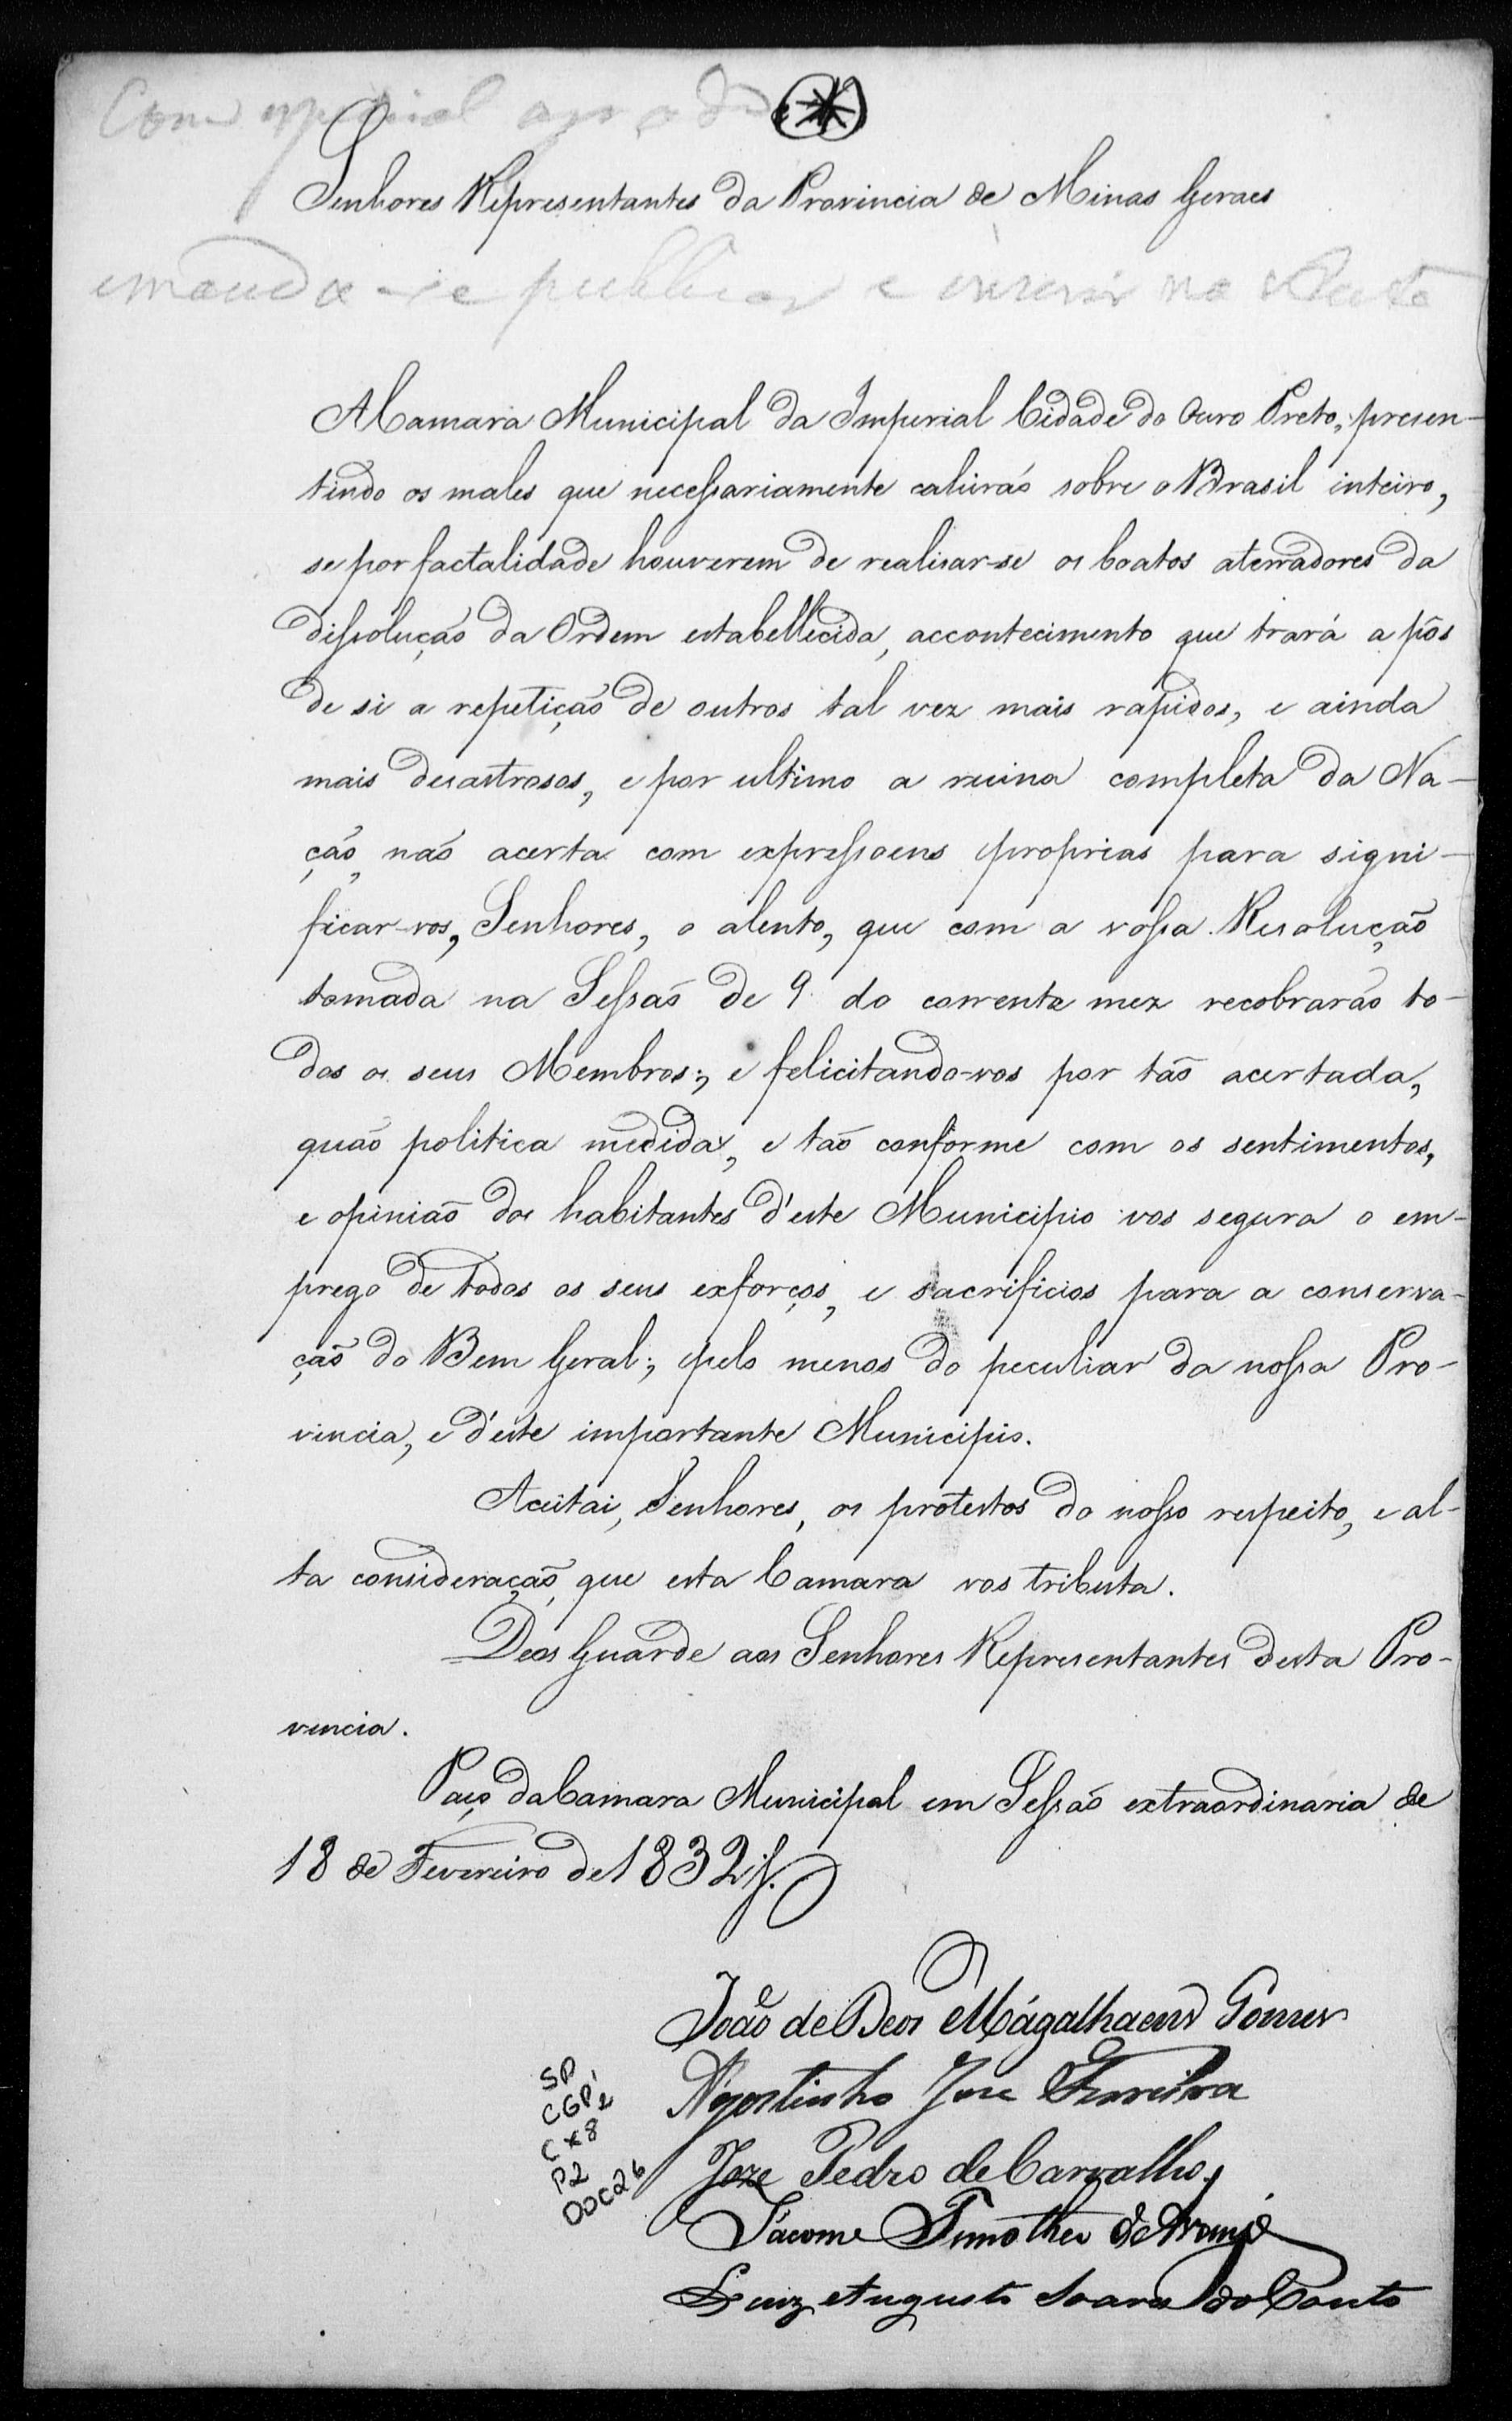 Com especial agrado
Senhores Representantes da Provincia de Minas Geraes
e manda-se publicar e inserir na Acta
A Camara Municipal da Imperial Cidade do Ouro Preto, presen-
tindo os males que necessariamente cahirás sobre o Brasil inteiro,
se por factalidade houverem de realisar-se os boatos aterradores da
dissoluçaõ da Ordem estabellecida, accontecimento que trará a pôs
de si a repetiçaõ de outros tal vez mais rapidos, e ainda
mais desastrosos, e por ultimo a ruina completa da Na-
çaõ, naõ acerta com expressoens proprias para signi-
ficar-vos, Senhores, o alento, que com a vossa Resoluçaõ
tomada na Sessaõ de 9 do corrente mez recobraraõ to-
dos os seus Membros; e felicitando-vos por taõ acertada,
quaõ politica medida, e taõ conforme com os sentimentos,
e opiniaõ dos habitantes d'este Municipio vos segura o em-
prego de todos os seus exforços, e sacrificios para a conserva-
çaõ do Bem Geral; pelo menos do peculiar da nossa Pro-
vincia, e d'este importante Municipio.
Aceitai, Senhores, os protestos do nosso respeito, e al-
ta consideraçaõ, que esta Camara vos tributa.
Deos Guarde aos Senhores Representantes desta Pro-
vincia.
Paço da Camara Municipal em Sessaõ extraordinaria de
18 de Fevereiro de 1832
Joaõ de Deos Magalhaens Gomes
Agostinho Jose Ferreira
Joze Pedro de Carvalho
Jácome Timotheo de Araujo
Luiz Augusto Soares do Couto
SP
CGP¹2
CX8
P2
DOC26